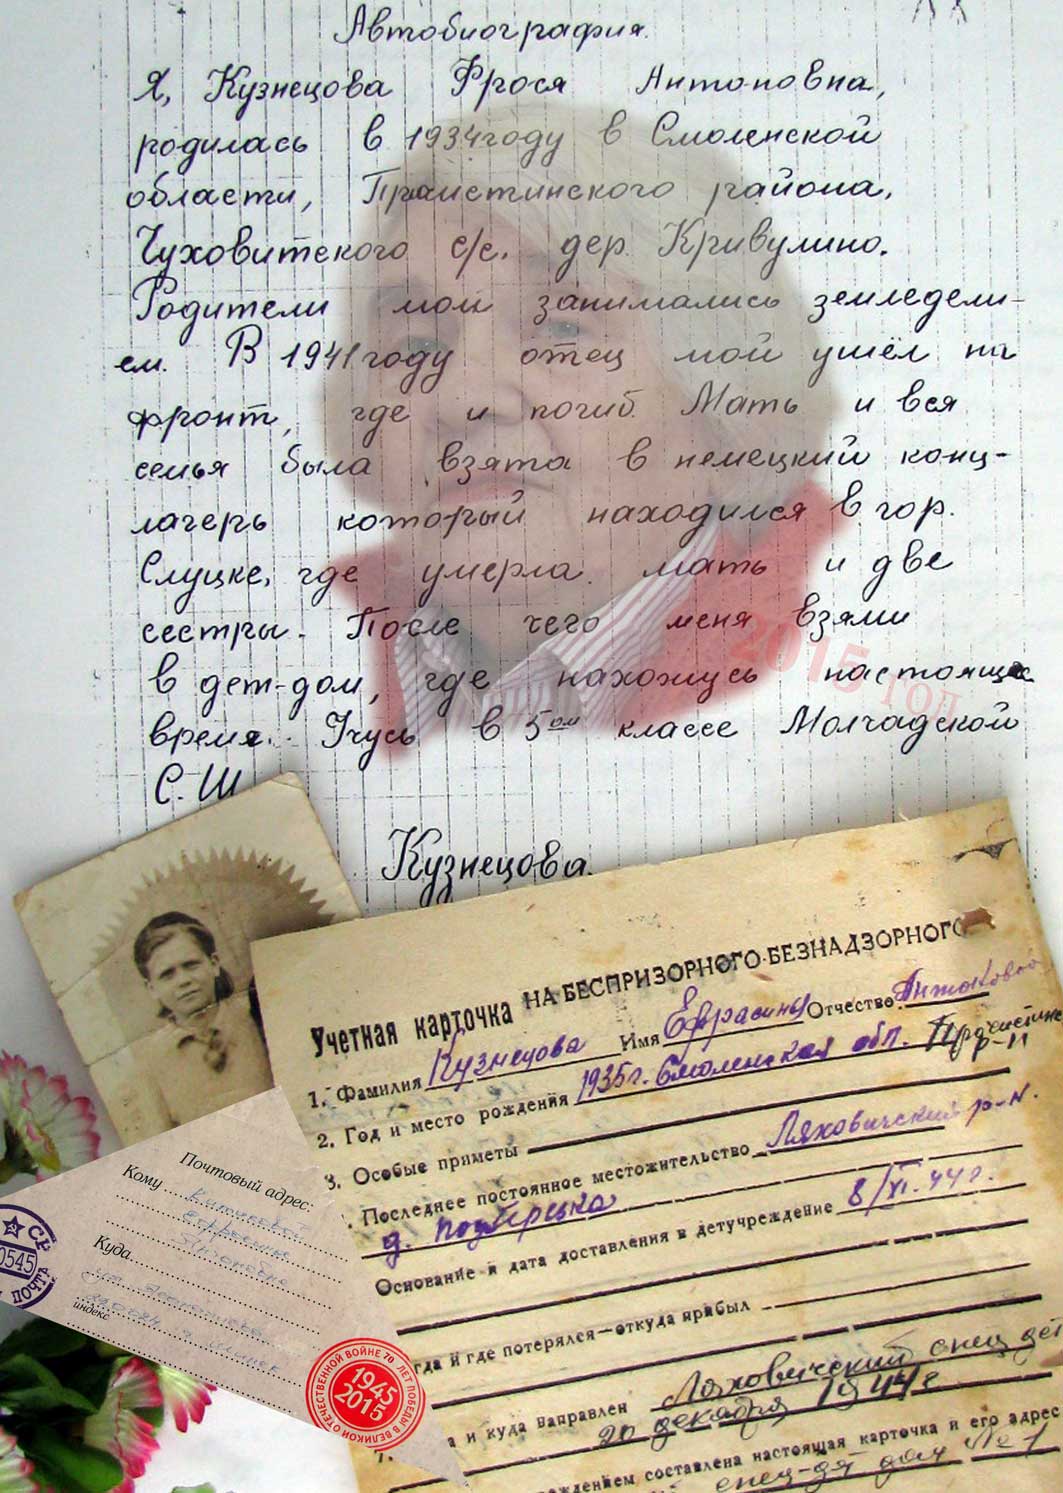 Автобиография.
Я, Кузнецова Фрося Антоновна,
родилась в 1934году в Смоленской
области, Пречистинского района,
Чуховитского с/с. дер. Кривулино.
Родители мои занимались земледели-
ем. В 1941году отец мой ушёл на
фронт, где и погиб. Мать и вся
семья была взята в немецкий конц-
лагерь который находился в гор.
Слуцке, где умерла мать и две
сестры. После чего меня взяли
в дет-дом, где нахожусь настоящее
время. Учусь в 5ом классе Молчадской
С.Ш
Кузнецова.
2015 год
Учетная карточка НА БЕСПРИЗОРНОГО-БЕЗНАДЗОРНОГО
1. Фамилия Кузнецова Имя Ефрасиния Отчество Антоновна
2. Год и место рождения 1935г. Смоленская обл. Пречистинс
р-н
3. Особые приметы
Последнее постоянное местожительство Ляховичский р-н.
д. Подбрецка
Основание и дата доставления в детучреждение 8/VI.44г.
гда и где потерялся—откуда прибыл
а и куда направлен Ляховичский спец дет
20 декабря 1944г
7.
рождением составлена настоящая карточка и его адрес
спец-дет дом № 1
Почтовый адрес:
Кому
Ефросинье
Антоновне
Куда
индекс
0545
ПОЧТА
1945
2015
70 ЛЕТ ПОБЕДЫ В ВЕЛИКОЙ ОТЕЧЕСТВЕННОЙ ВОЙНЕ